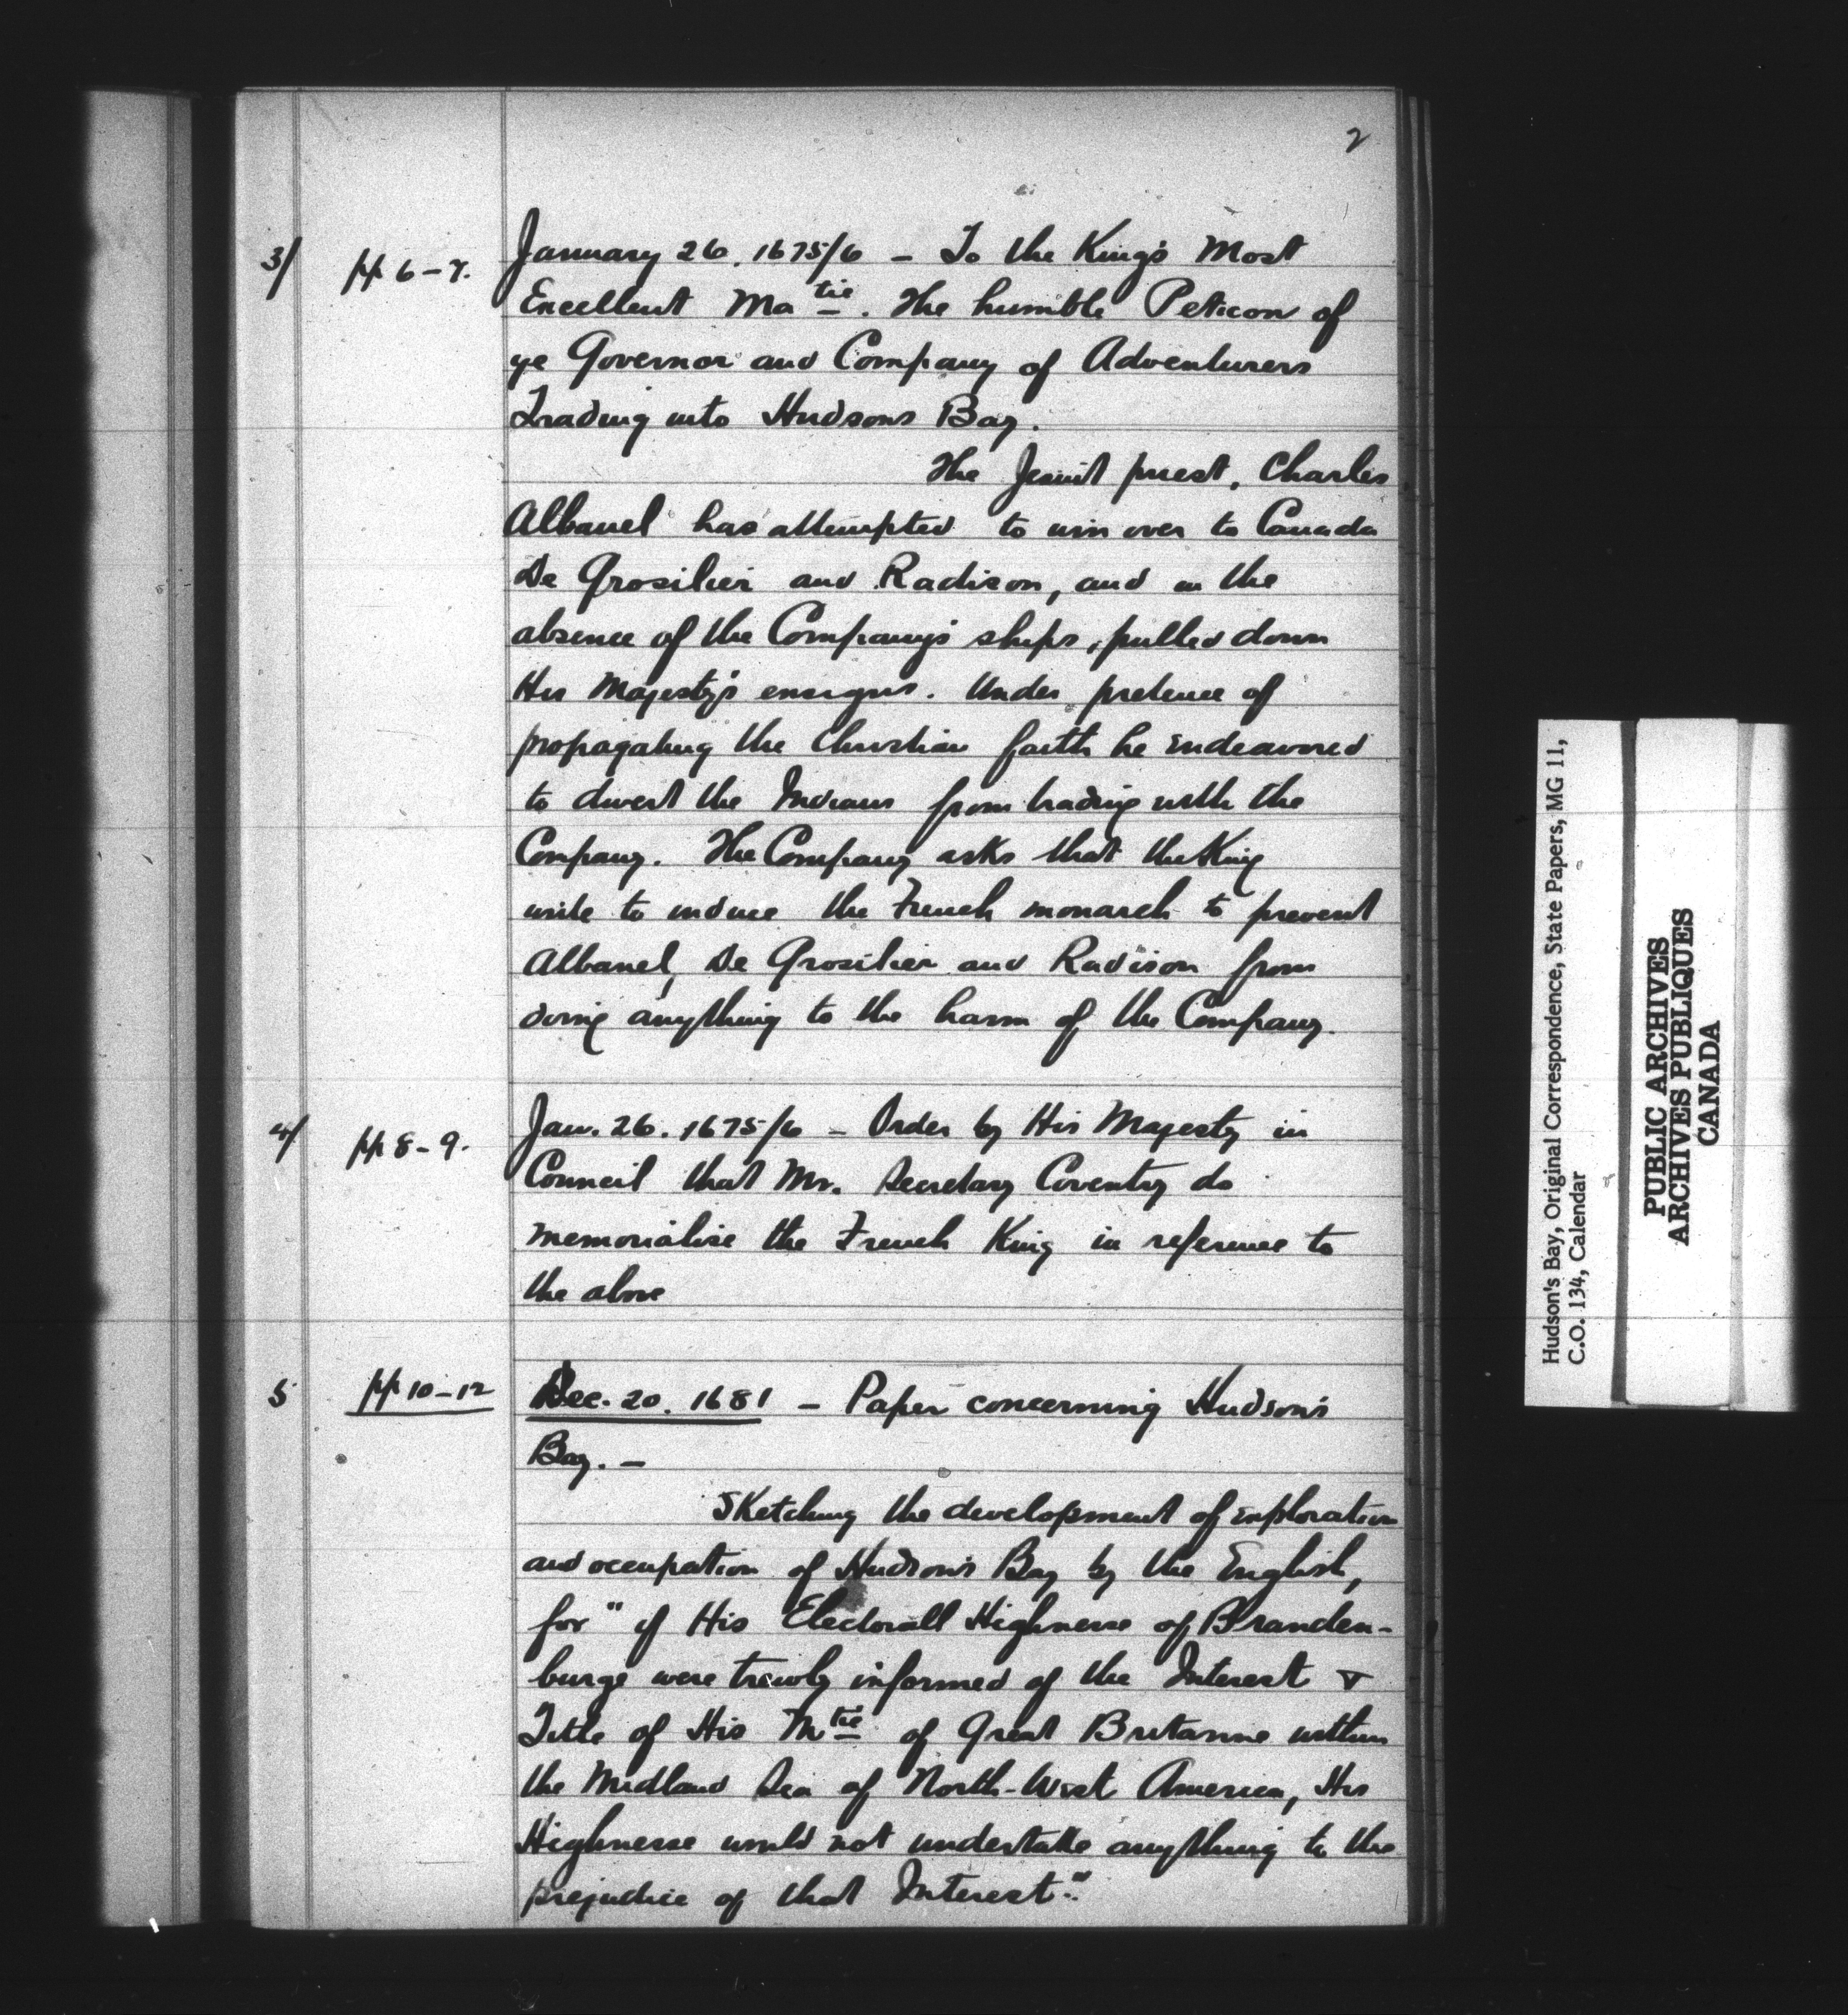 2
3/ pp 6-7. January 26. 1675/6 – To the King's Most
Excellent Ma tie. The humble Peticon of
ye Governor and Company of Adventurers
Trading into Hudsons Bay.
The Jesuit priest, Charles
Albanel has attempted to win over to Canada
De Grosilier and Radison, and in the
absence of the Company's ships, pulled down
His Majesty's ensigns. Under pretence of
propagating the Christian faith he endeavored
to divert the Indians from trading with the
Company. The Company asks that the King
write to induce the French monarch to prevent
Albanel, De Grosilier and Radison from
doing anything to the harm of the Company.
4/ pp 8-9. Jan. 26. 1675/6 – Order by His Majesty in
Council that Mr. Secretary Coventry do
memorialise the French King in reference to
the above
5 pp 10-12 Dec. 20. 1681 – Paper concerning Hudson's
Bay. –
Sketching the development of exploration
and occupation of Hudson's Bay by the English,
for "if His Electorall Highnesse of Branden-
burge were trewly informed of the Interest &
Title of His Mtie of Great Britanne within
the Midland Sea of North-West America, His
Highnesse would not undertake anything to the
prejudice of that Interest."
Hudson's Bay, Original Correspondence, State Papers, MG 11,
C.O. 134, Calendar
PUBLIC ARCHIVES
ARCHIVES PUBLIQUES
CANADA